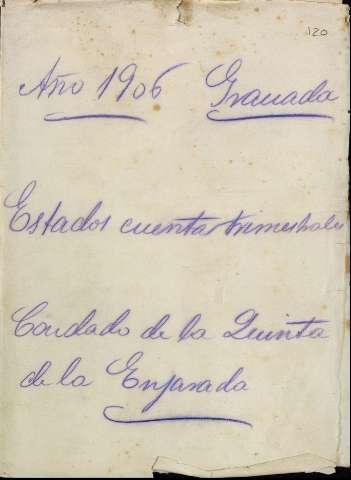 120
Año 1906 Granada
Estados cuentas trimestrales
Condado de la Quinta
de la Enjarada